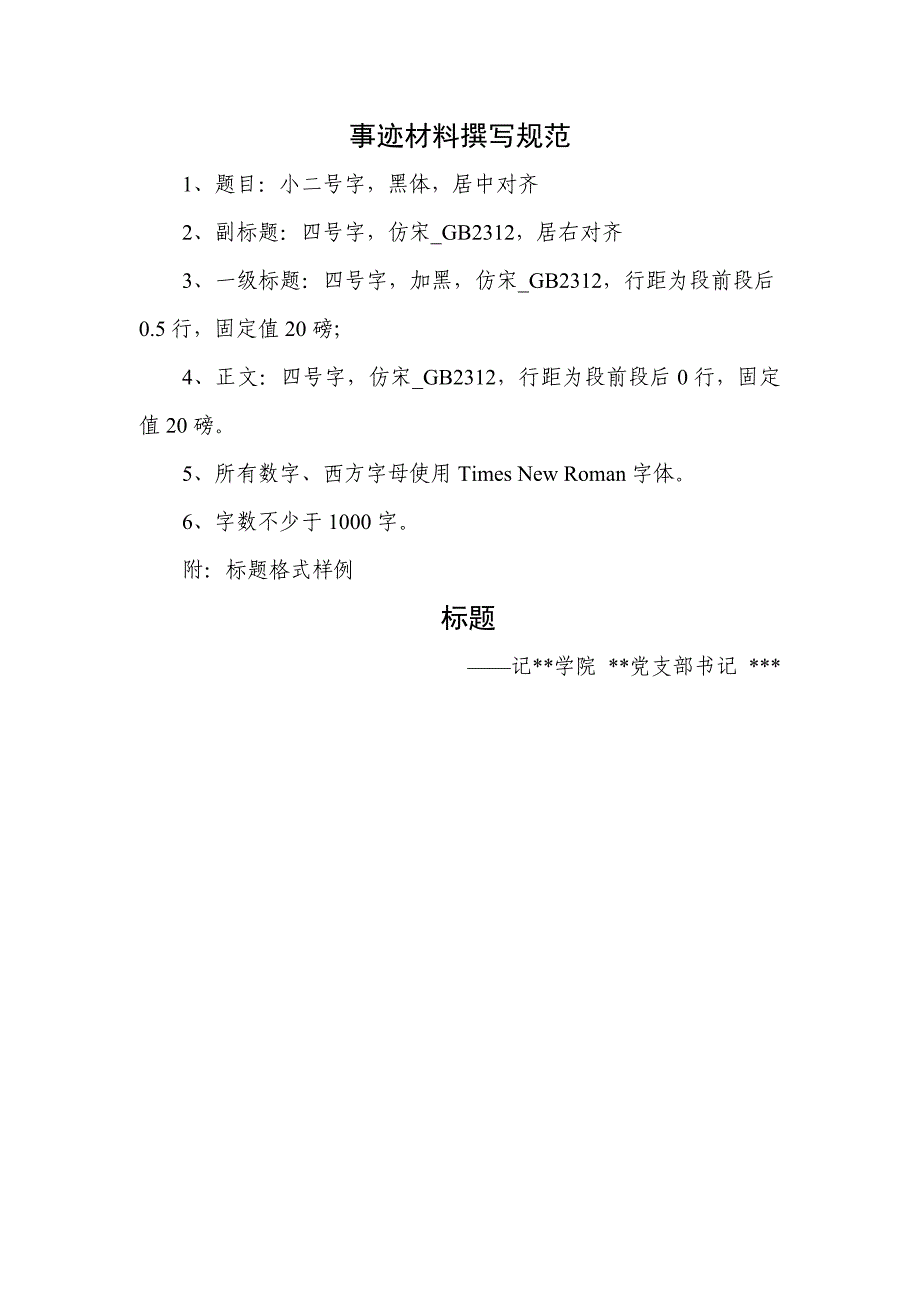 事迹材料撰写规范
1、题目：小二号字，黑体，居中对齐
2、副标题：四号字，仿宋_GB2312，居右对齐
3、一级标题：四号字，加黑，仿宋_GB2312，行距为段前段后
0.5 行，固定值 20 磅;
4、正文：四号字，仿宋_GB2312，行距为段前段后 0 行，固定
值 20 磅。
5、所有数字、西方字母使用 Times New Roman 字体。
6、字数不少于 1000 字。
附：标题格式样例
标题
——记**学院 **党支部书记 ***